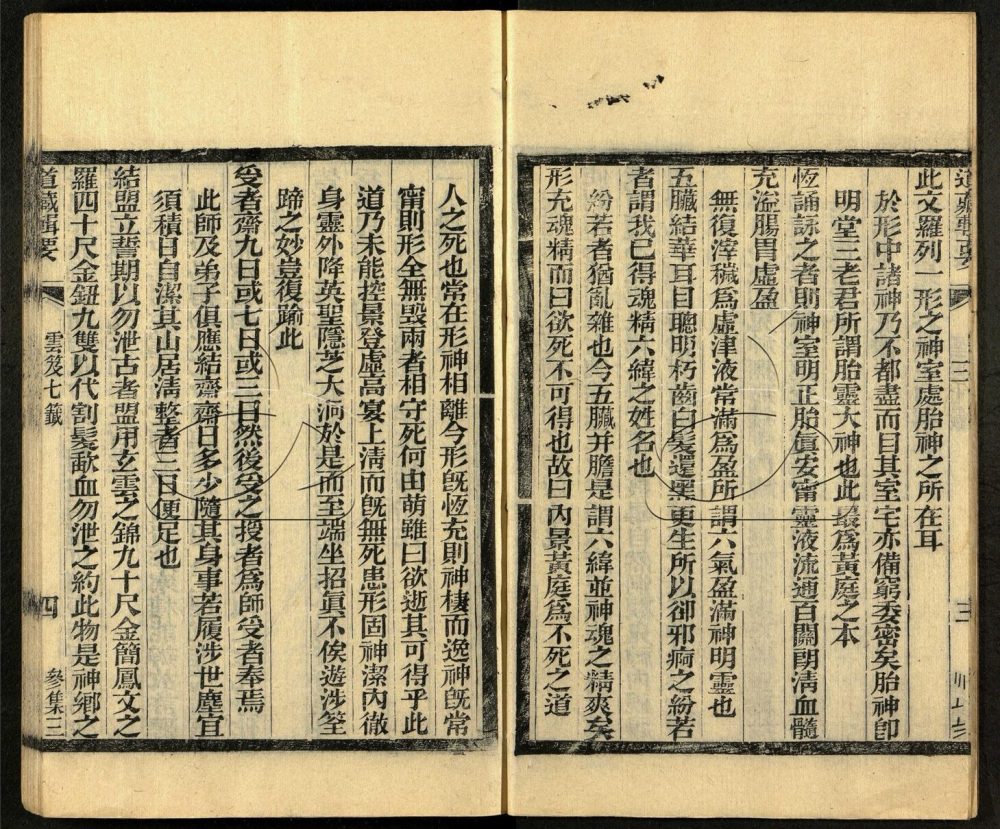 此文羅列一形之神室處胎神之所在耳
於形中諸神乃不都盡而目其室宅亦備窮委密矣胎神卽
明堂三老君所謂胎靈大神也此最爲黃庭之本
恆誦詠之者則神室明正胎眞安甯靈液流通百關朗淸血髓
充溢腸胃虛盈
無復滓穢爲虛津液常滿爲盈所謂六氣盈滿神明靈也
五臟結華耳目聰明朽齒白髮還黑更生所以卻邪痾之紛若
者謂我已得魂精六緯之姓名也
紛若者猶亂雜也今五臟并膽是謂六緯並神魂之精爽矣
形充魂精而曰欲死不可得也故曰內景黃庭爲不死之道
人之死也常在形神相離今形旣恆充則神棲而逸神旣常
甯則形全無毀兩者相守死何由萌雖曰欲逝其可得乎此
道乃未能控景登虛高宴上淸而旣無死患形固神潔內徹
身靈外降英聖隱芝大洞於是而至端坐招眞不俟遊涉筌
蹄之妙豈復踰此
受者齋九日或七日或三日然後受之授者爲師受者奉焉
此師及弟子俱應結齋齋日多少隨其身事若履涉世塵宜
須積日自潔其山居淸整者三日便足也
結盟立誓期以勿泄古者盟用玄雲之錦九十尺金簡鳳文之
羅四十尺金鈕九雙以代割髮歃血勿泄之約此物是神鄉之
道藏輯要
雲笈七籤
四
參集三